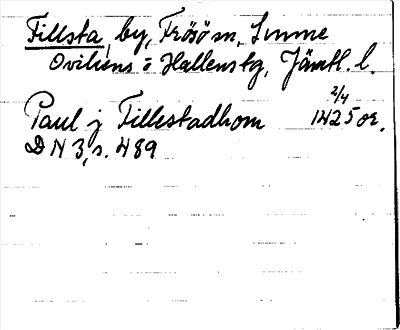 Tillsta, by, Frösö sn, Sunne
Oviliens o Hallens tg, Jämtl. l.
Paul j Tillestadhom 2/4 1425 or.
DN 3, s. 489